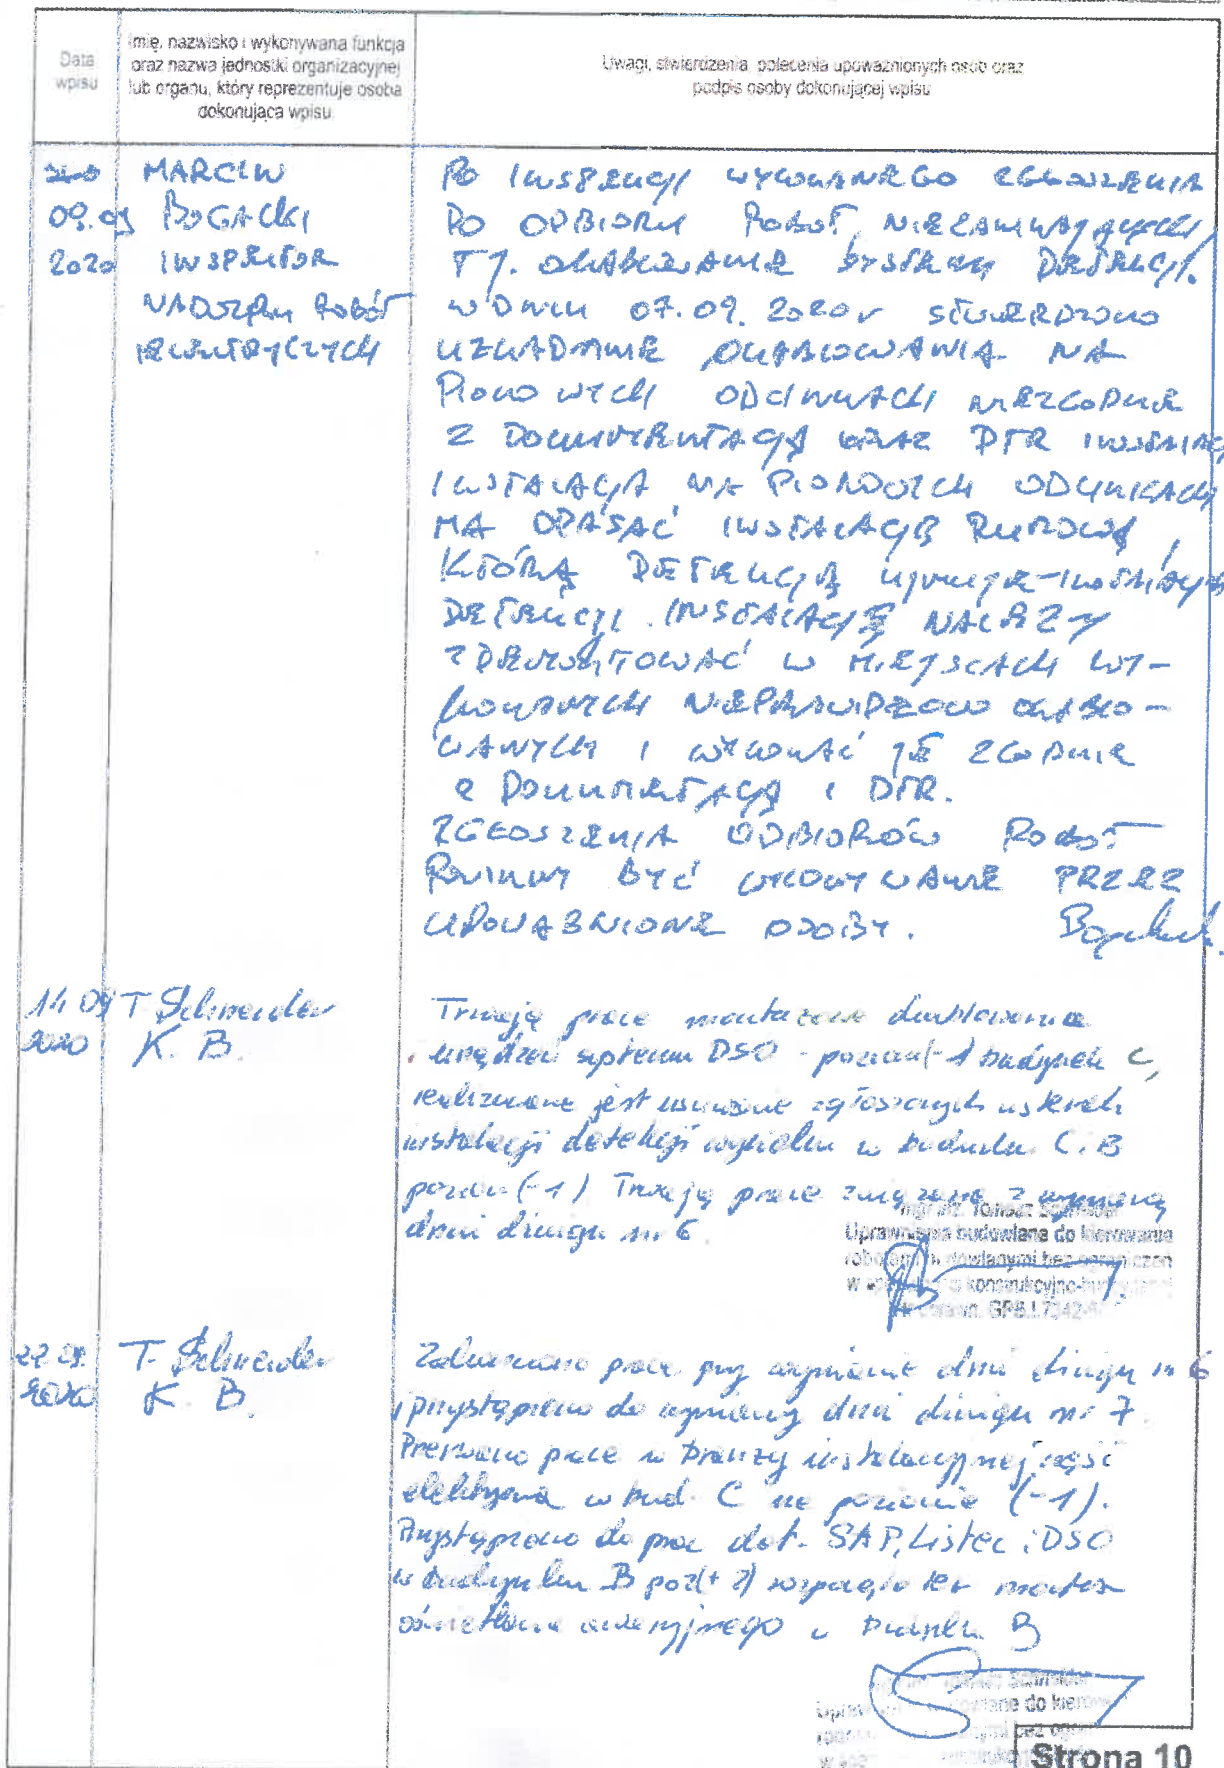 Data
wpisu
Imię, nazwisko i wykonywana funkcja
oraz nazwa jednostki organizacyjnej
lub organu, który reprezentuje osoba
dokonująca wpisu
Uwagi, stwierdzenia, polecenia upoważnionych osób oraz
podpis osoby dokonującej wpisu
09.09
2020
MARCIN
BOGACKI
INSPEKTOR
NADZORU ROBÓT
ELEKTRYCZNYCH
PO INSPEKCJI WYKONANEGO ZGŁOSZENIA
DO ODBIORU ROBÓT NIEZANIKAJĄCYCH,
TJ. OKABLOWANIE SYSTEMU DETEKCJI.
W DNIU 07.09.2020r STWIERDZONO
UKŁADANIE OKABLOWANIA NA
PIONOWYCH ODCINKACH NIEZGODNIE
Z DOKUMENTACJĄ ORAZ DTR
INSTALACJA NA PIONOWYCH ODCINKACH
MA OPASAĆ INSTALACJĘ RUROWĄ,
KTÓRĄ DETEKCJĄ
DETEKCJI. INSTALACJĘ NALEŻY
ZDEMONTOWAĆ W MIEJSCACH WY-
KONANYCH NIEPRAWIDŁOWO OKABLO-
WANYCH I WYKONAĆ JĄ ZGODNIE
Z DOKUMENTACJĄ I DTR.
ZGŁOSZENIA ODBIORÓW ROBÓT
POWINNY BYĆ WYKONYWANE PRZEZ
UPOWAŻNIONE OSOBY.
14 09
2020
T. Schneider
K. B.
Trwają prace montażowe okablowania
i urządzeń systemu DSO - poziom (-1) budynek C,
realizowane jest usuwanie zgłoszonych usterek
instalacji detekcji wycieku w budynku C. B
poziom (-1) Trwają prace związane z wymianą
drzwi dźwigu nr 6
Uprawnienia budowlane do kierowania
robotami budowlanymi bez ograniczeń
w konstrukcyjno-
GPB.I.7342-
2020
T. Schneider
K. B.
Zakończono prace przy wymianie drzwi dźwigu nr 6
i przystąpiono do wymiany drzwi dźwigu nr 7.
Przerwano prace w branży instalacyjnej część
elektryczna w bud. C na poziomie (-1).
Przystąpiono do prac dot. SAP, Listec i DSO
w budynku B poz(+ 2) rozpoczęto też montaż
oświetlenia awaryjnego w budynku B
do kierow
Strona 10